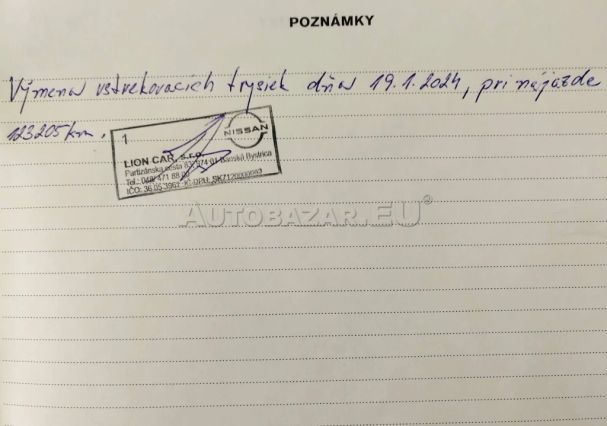 POZNÁMKY
Výmena vstrekovacích trysiek dňa 19.1.2024, pri nájazde
123205km.
1
NISSAN
LION CAR, s.r.o.
Partizánska cesta 83, 974 01 Banská Bystrica
Tel.: 048/ 471 88
IČO: 36 05 3961 IČ DPH: SK7120000083
AUTOBAZAR.EU®